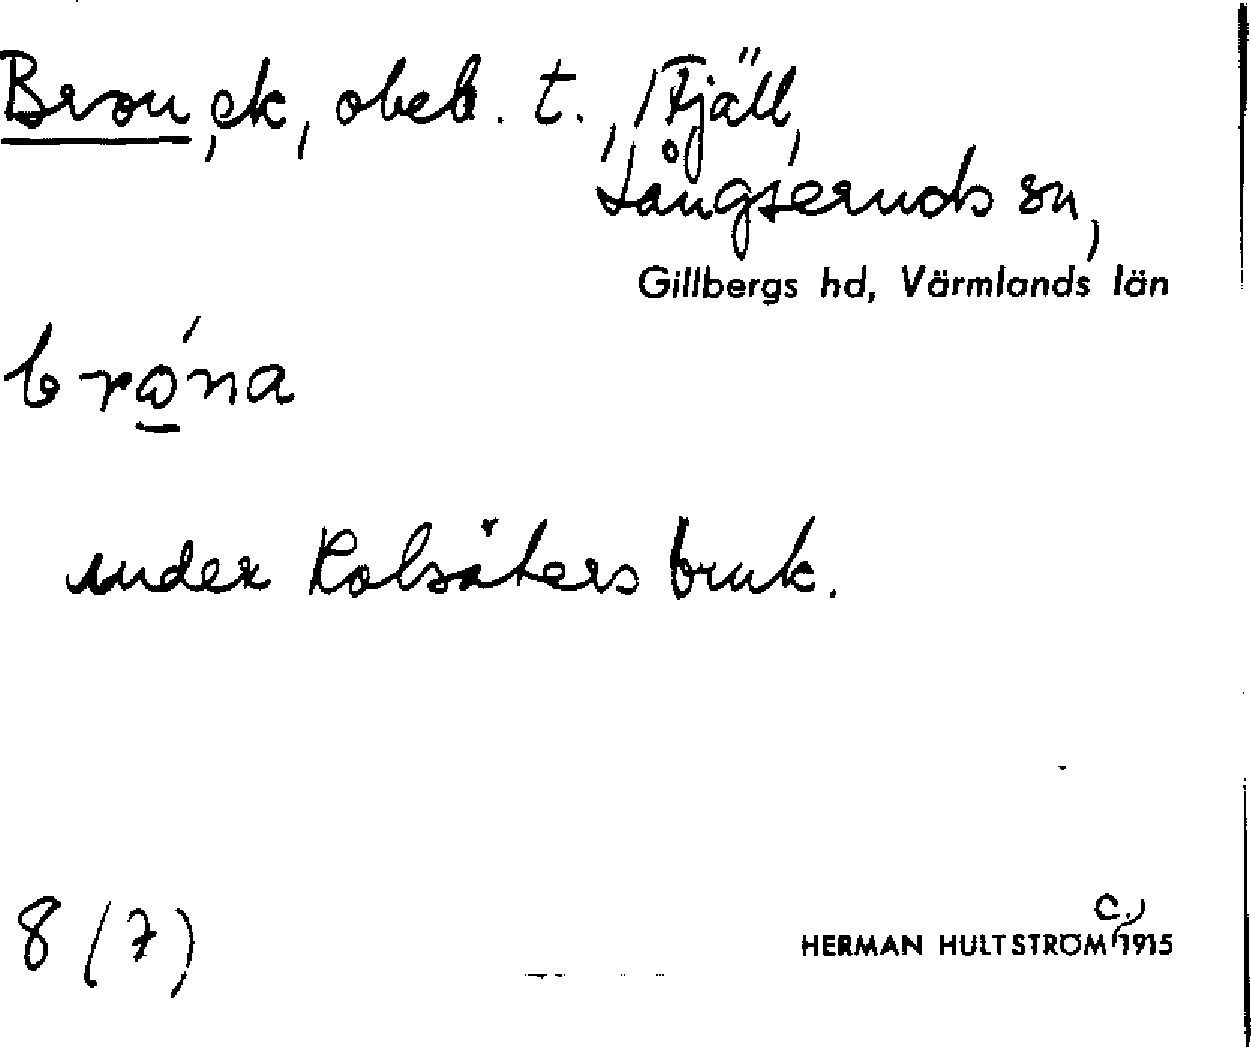 Bron, ek, obeb. t., Fjäll,
Långseruds sn,
Gillbergs hd, Värmlands län
brώna
under Rolsäters bruk.
8 (7)
HERMAN HULTSTRÖM c., 1915